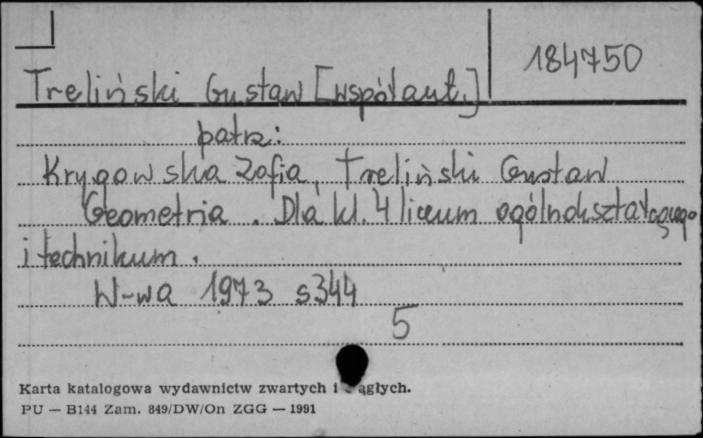 184750
Treliński Gustaw [współaut.]
patrz:
Krygowska Zofia, Treliński Gustaw
Geometria. Dla kl. 4 liceum ogólnokształcącego
i technikum.
W-wa 1973 s344
5
Karta katalogowa wydawnictw zwartych i ciągłych.
PU — B144 Zam. 849/DW/On ZGG — 1991